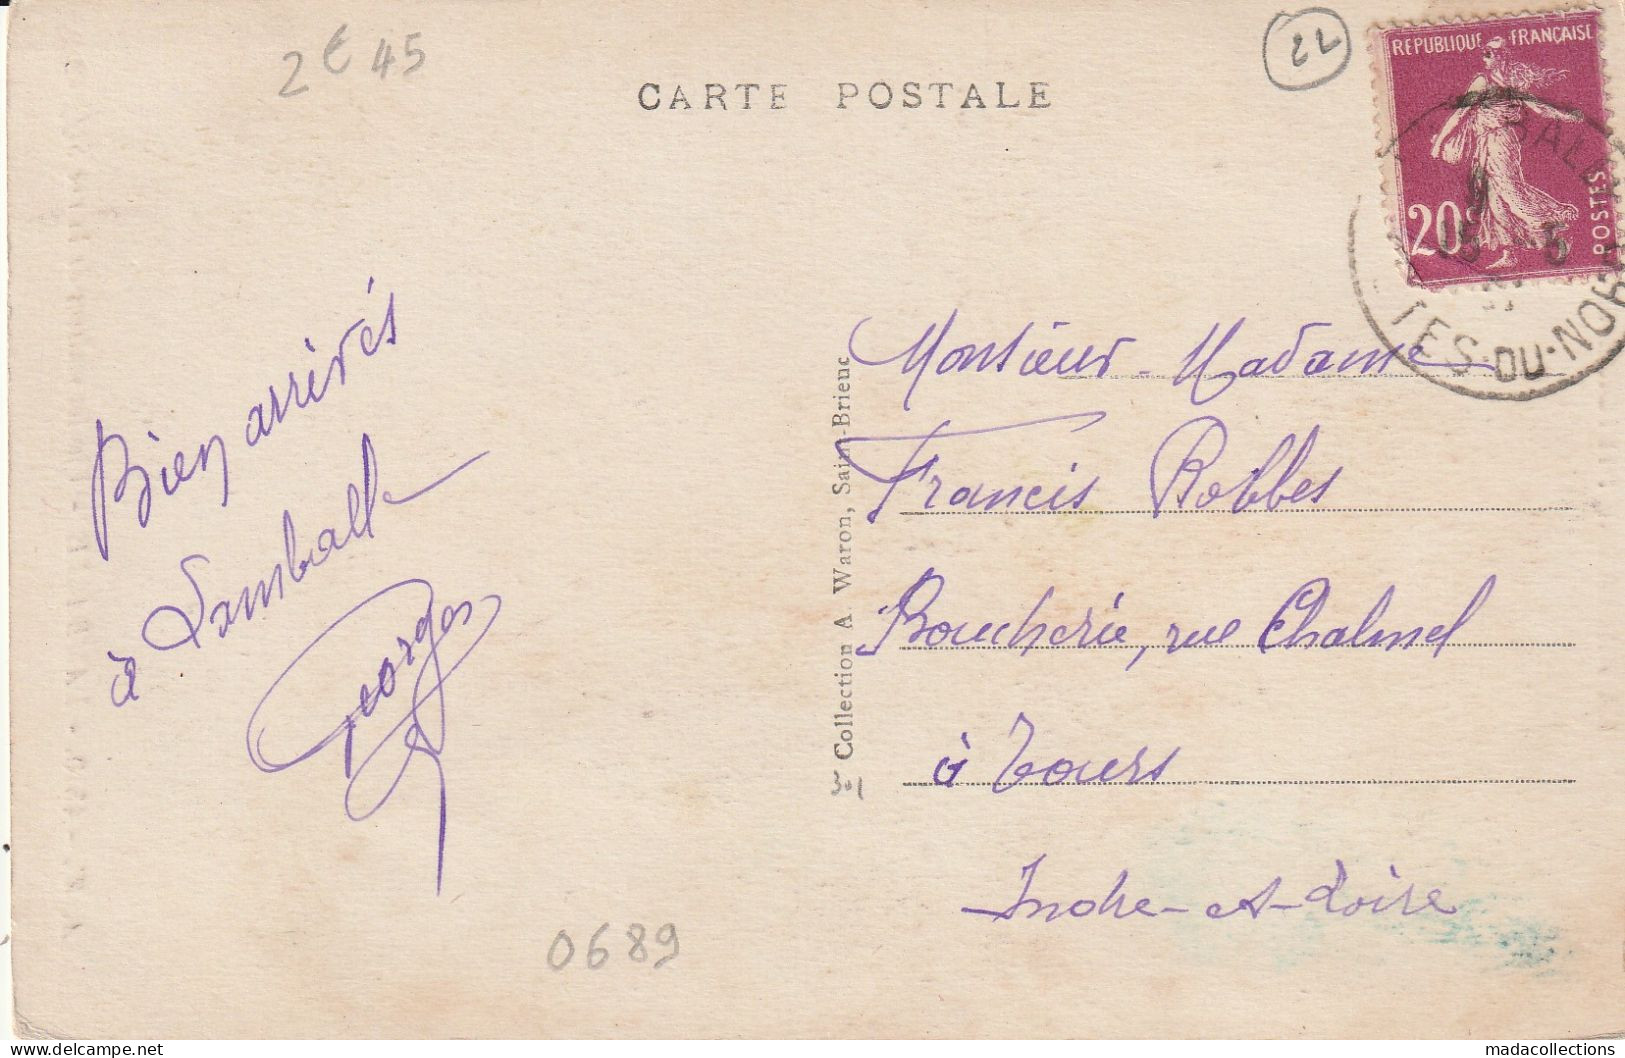 2€45
CARTE POSTALE
22
REPUBLIQUE FRANÇAISE
20c
POSTES
9
15 -5
TES-DU-NORD
Bien arrivés
à Lamballe
Georges
Collection A Waron, Saint-Brieuc
Monsieur - Madame
Francis Robbes
Boucherie, rue Chalmel
à Tours
Indre-et-Loire
0689
delcampe.net
madacollections